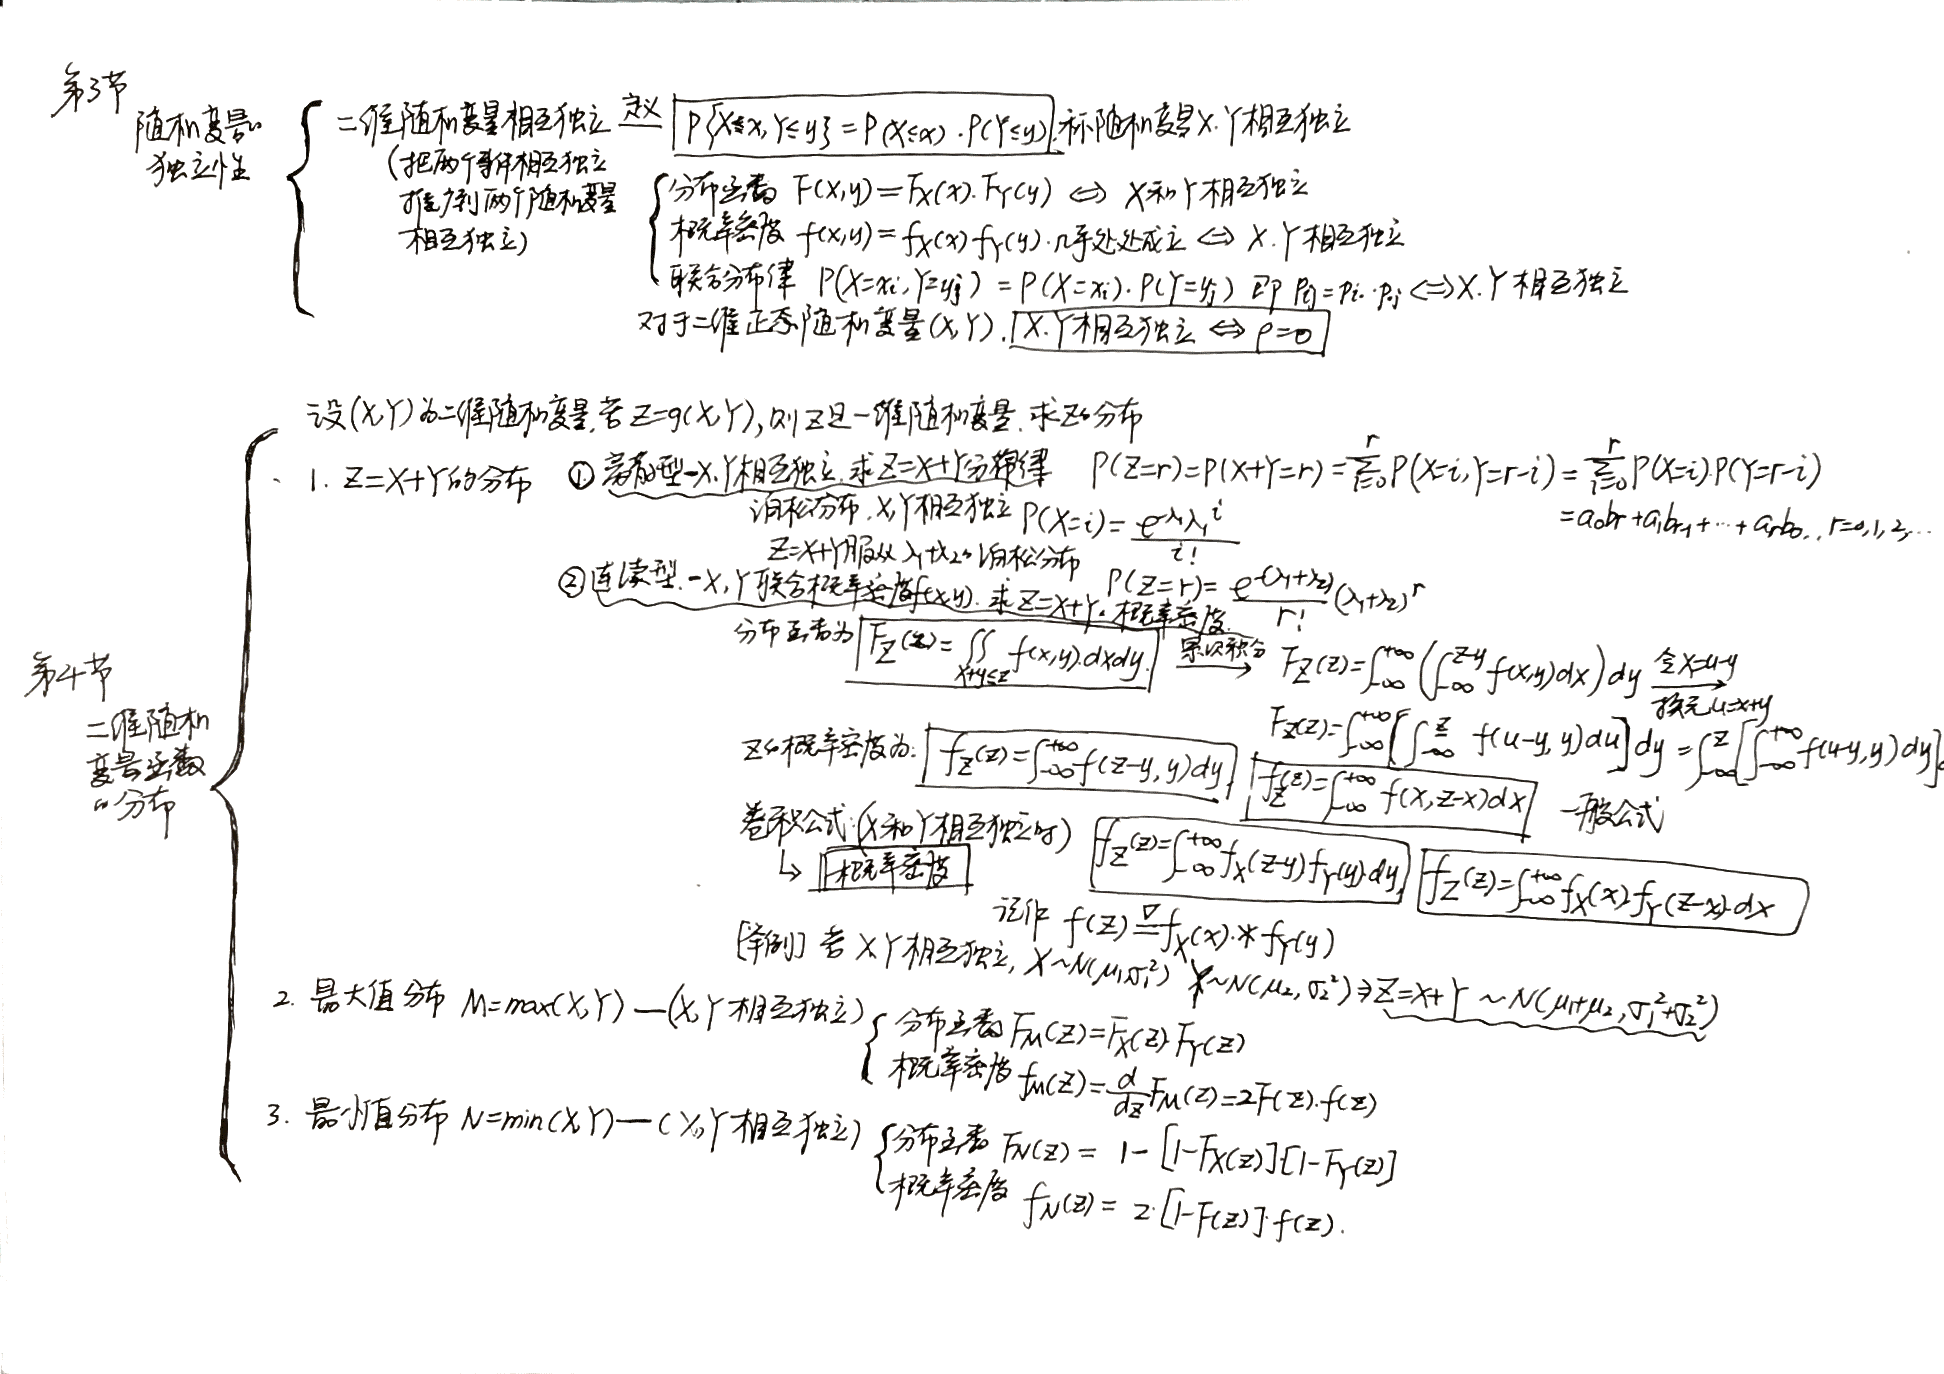 第3节
随机变量的
独立性
二维随机变量相互独立 定义 P{X≤x, Y≤y} = P(X≤x)·P(Y≤y). 称随机变量X.Y相互独立
(把两个事件相互独立
推广到两个随机变量
相互独立)
分布函数 F(x,y)=F_X(x).F_Y(y) ⇔ X和Y相互独立
概率密度 f(x,y)=f_X(x) f_Y(y).几乎处处成立 ⇔ X.Y相互独立
联合分布律 P(X=x_i, Y=y_j) = P(X=x_i).P(Y=y_j) 即 P_ij=P_i.·P_.j ⇔ X.Y相互独立
对于二维正态随机变量(X,Y). X.Y相互独立 ⇔ ρ=0
第4节
二维随机
变量函数
的分布
设(X,Y)为二维随机变量,若Z=g(X,Y),则Z是一维随机变量.求Z的分布
1. Z=X+Y的分布 ①离散型-X.Y相互独立.求Z=X+Y分布律 P(Z=r)=P(X+Y=r)=∑_{i=0}^{r} P(X=i,Y=r-i)=∑_{i=0}^{r} P(X=i).P(Y=r-i)
=a_0b_r+a_1b_{r-1}+⋯+a_rb_0, r=0,1,2,⋯
泊松分布.X,Y相互独立 P(X=i)=e^{-λ_1}λ_1^i/i!
Z=X+Y服从λ_1+λ_2的泊松分布 P(Z=r)=e^{-(λ_1+λ_2)}/r! (λ_1+λ_2)^r
②连续型.-X,Y联合概率密度f(x,y).求Z=X+Y的概率密度.
分布函数为 F_Z(z)=∬_{x+y≤z} f(x,y).dxdy. 累次积分→ F_Z(z)=∫_{-∞}^{+∞}(∫_{-∞}^{z-y} f(x,y)dx)dy 令x=u-y 换元u=x+y→
F_Z(z)=∫_{-∞}^{+∞}[∫_{-∞}^{z} f(u-y,y)du]dy=∫_{-∞}^{z}[∫_{-∞}^{+∞}f(u-y,y)dy]
Z的概率密度为: f_Z(z)=∫_{-∞}^{+∞}f(z-y,y)dy f_Z(z)=∫_{-∞}^{+∞}f(x,z-x)dx 一般公式
卷积公式:(X和Y相互独立时) f_Z(z)=∫_{-∞}^{+∞}f_X(z-y)f_Y(y).dy, f_Z(z)=∫_{-∞}^{+∞}f_X(x).f_Y(z-x).dx
↳ 概率密度
记作 f(z)≜f_X(x).*f_Y(y)
[举例] 若X,Y相互独立, X~N(μ_1,σ_1²) Y~N(μ_2,σ_2²)⇒Z=X+Y~N(μ_1+μ_2,σ_1²+σ_2²)
2. 最大值分布 M=max(X,Y)—(X,Y相互独立)
分布函数 F_M(z)=F_X(z).F_Y(z)
概率密度 f_M(z)=d/dz F_M(z)=2F(z).f(z)
3. 最小值分布 N=min(X,Y)—(X,Y相互独立)
分布函数 F_N(z)= 1-[1-F_X(z)]·[1-F_Y(z)]
概率密度 f_N(z)= 2·[1-F(z)]·f(z).